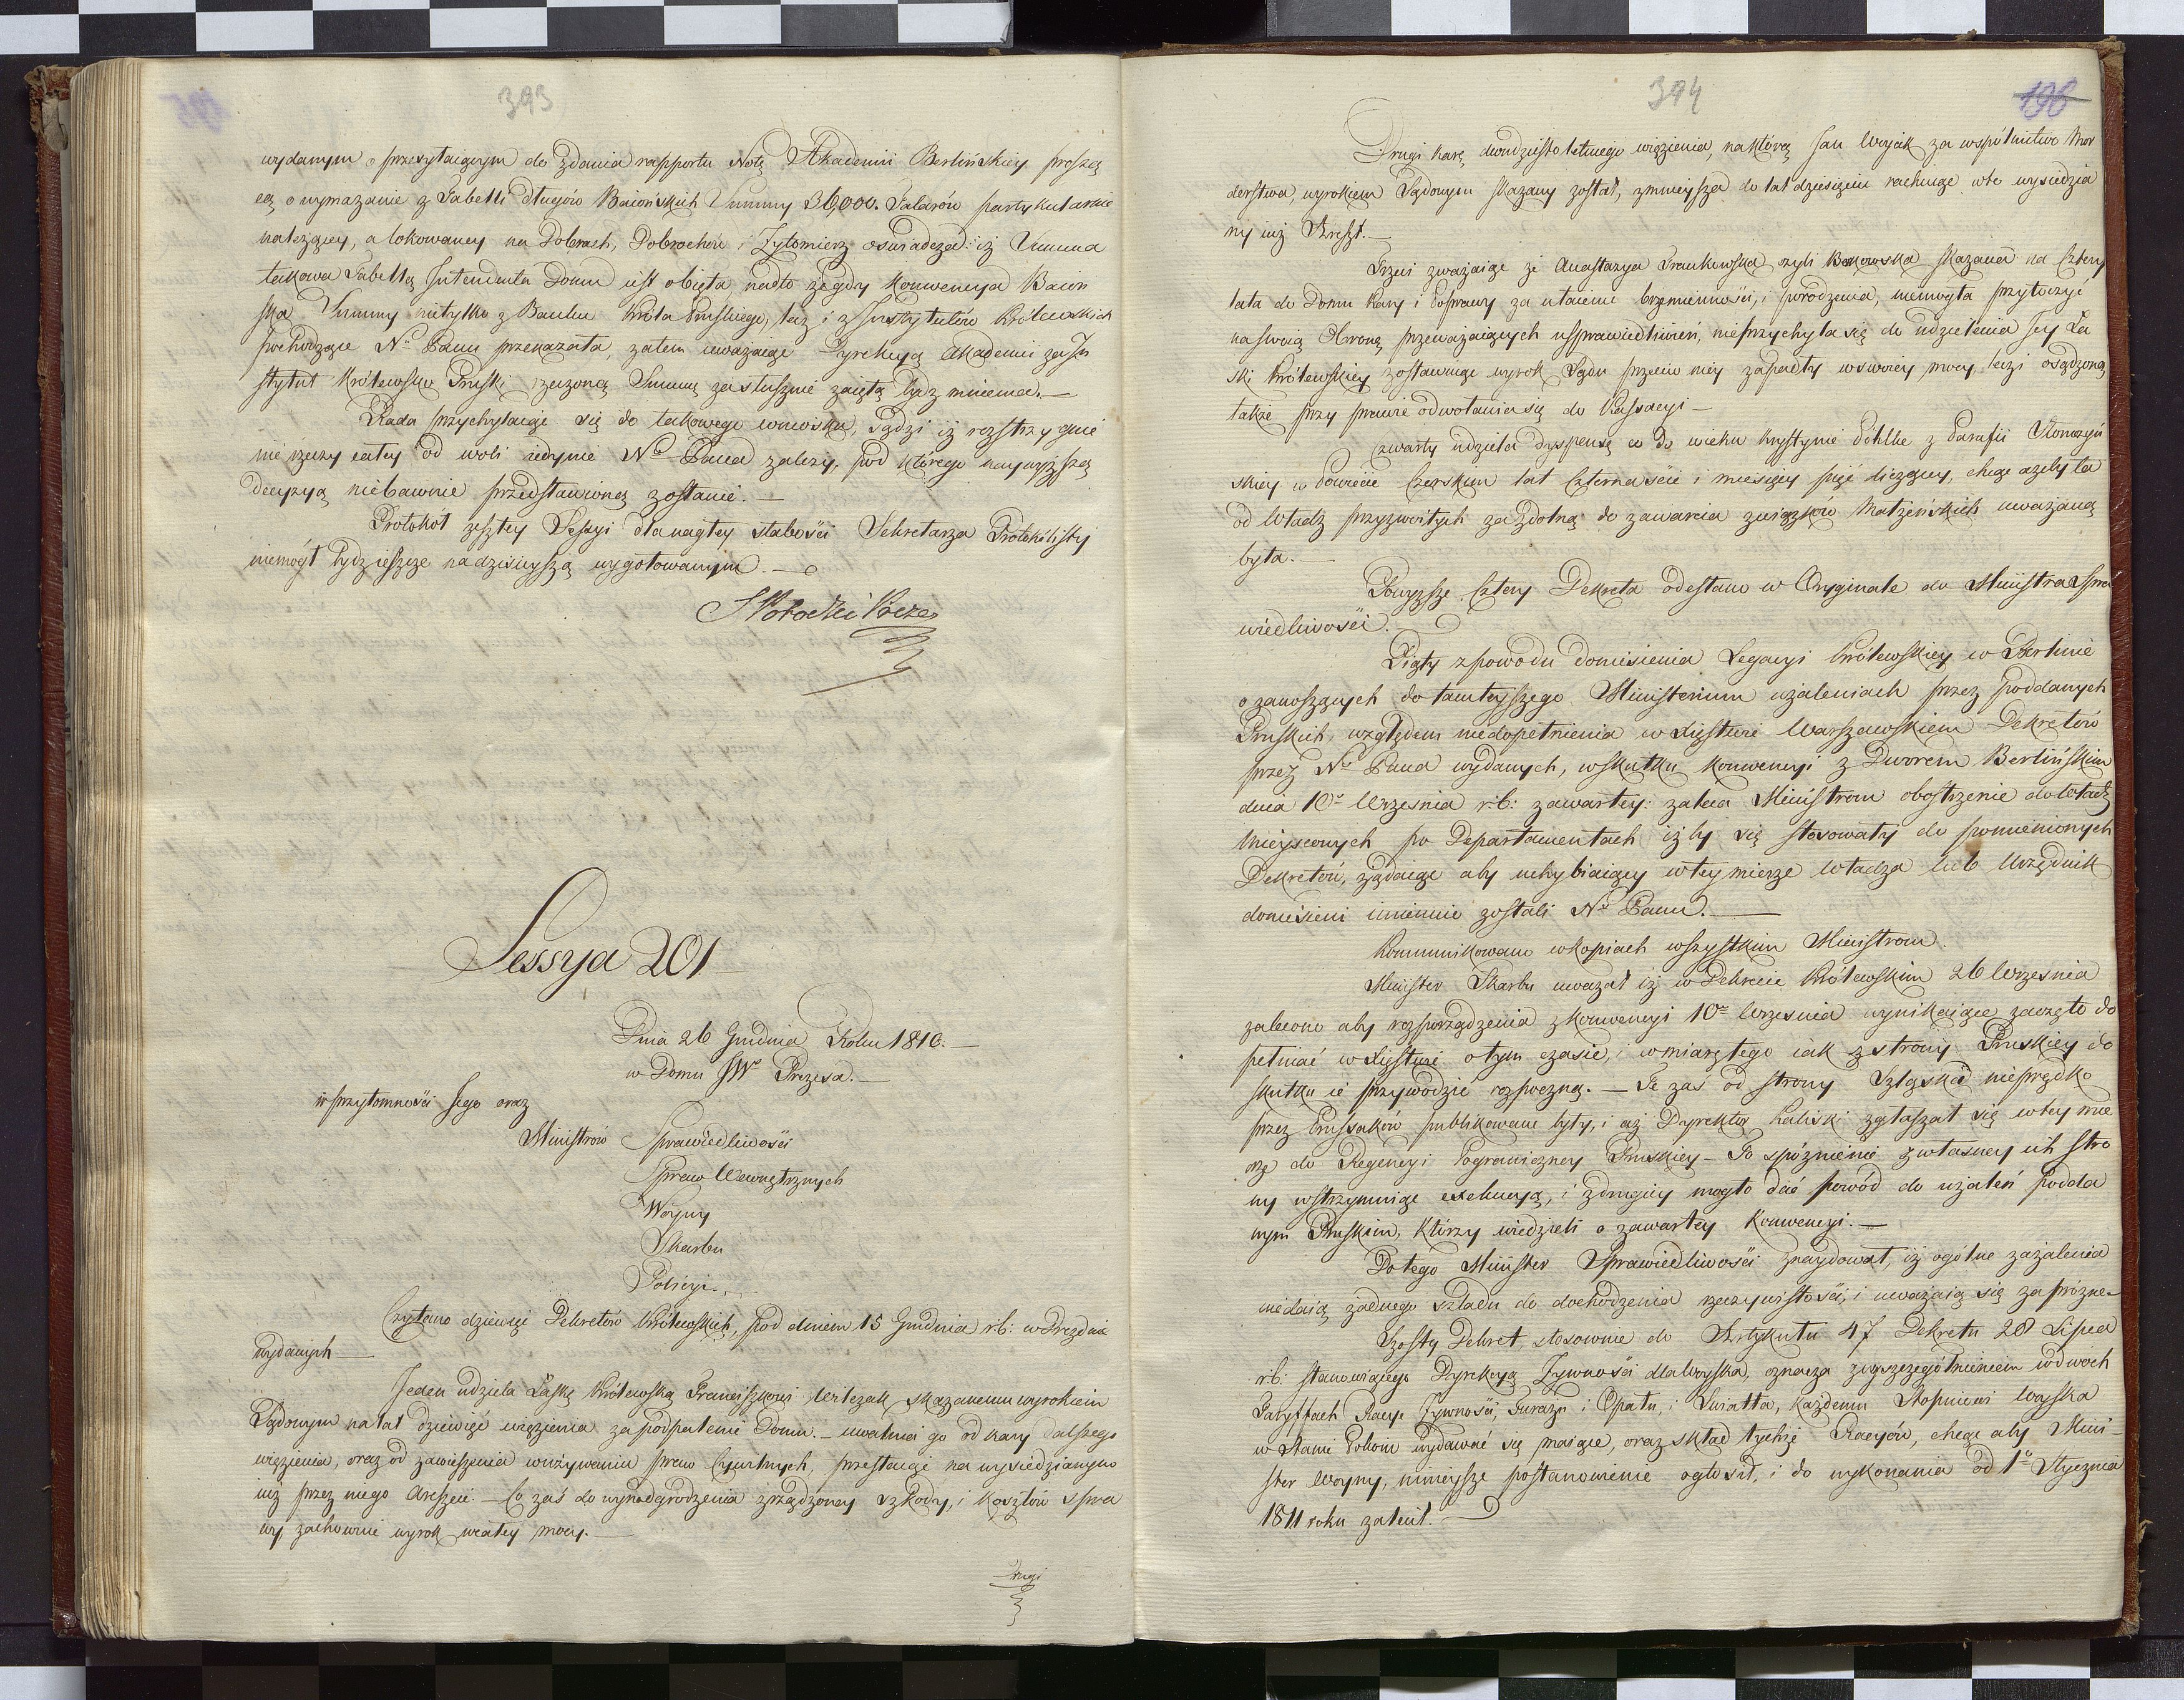 393
wydanym o przesyłaiącym do zdania rapportu Notę Akademii Berlińskiey proszą
cą o wymazanie z Tabelli długów Baiońskich Summy 36,000. Talarów partykularnie
należącey, a lokowaney na Dobrach, Dobrochów i Żytomierz oświadcza: iż Summa
takowa Tabellą Intendenta Domu iest obięta nadto że gdy Konwencya Baion
ska Summy nietylko z Banku Króla Pruskiego, lecz i z Instytutów Królewskich
pochodzące Nu. Panu przekazała, zatem uważaiąc Dyrekcyą Akademii za In
stytut Królewsko Pruski rzeczoną Summę za słusznie zaiętą bydz mniema.—
Rada przychylaiąc się do takowego wniosku, sądzi iż rozstrzygnie
nie rzeczy całey od woli iedynie No Pana zależy, pod którego naywyższą
decyzyą niebawnie przedstawioną zostanie.—
Protokół zeszłey Sessyi dla nagłey słabości Sekretarza Protokólisty
niemógł bydz ieszcze na dzisieyszą wygotowanym.—
S Potocki Prezes
Sessya 201
Dnia 26 Grudnia Roku 1810.—
w Domu JWo Prezesa.—
w przytomności Jego oraz
Ministrów Sprawiedliwości
Spraw Wewnętrznych
Woyny
Skarbu
Policyi.
Czytano dziewięć Dekretów Królewskich, pod dniem 15 Grudnia rb: w Dreznie
wydanych—
Jeden udziela Łaskę Królewską Franciszkowi Witczak, skazanemu wyrokiem
Sądowym na lat dziewięć więzienia za podpalenie Domu.— uwalnia go od kary dalszego
więzienia, oraz od zawieszenia w używaniu praw Cywilnych, przestaiąc na wysiedzianym
iuż przez niego areszcie.— Co zaś do wynadgrodzenia zrządzoney szkody, i kosztów spra
wy zachowuie wyrok w całey mocy.—
Drugi
394
196
Drugi karę dwudziestoletniego więzienia, na którą Jan Woycik za wspólnictwo Mor
derstwa, wyrokiem Sądowym skazany został, zmnieysza do lat dziesięciu rachuiąc w to wysiedzia
ny iuż Areszt.—
Trzeci zważaiąc że Anastazya Frankowska czyli Bakowska skazana na cztery
lata do Domu Kary i Poprawy za utaienie brzemienności, i porodzenia, niemogła przytoczyć
na swoią Obronę przeważaiących usprawiedliwień, nieprzychyla się do udzielenia Jey Ła
ski Królewskiey zostawuiąc wyrok Sądu przeciw niey zapadły w swoiey mocy, lecz i osądzoną
także przy prawie odwołania się do Kassacyi—
Czwarty udziela dyspensę co do wieku Krystynie Dehlke z Parafii Słomczyń
skiey w Powiecie Czerskim lat Czternaście i miesięcy pięć liczącey, chcąc ażeby ta
od Władz przyzwoitych za zdolną do zawarcia związków Małżeńskich uważaną
była.—
Powyższe Cztery Dekreta odesłano w Oryginale do Ministra Spra
wiedliwości.
Piąty z powodu doniesienia Legacyi Królewskiey w Berlinie
o zanoszonych do tamteyszego Ministerium użaleniach przez poddanych
Pruskich, względem niedopełnienia w Xięstwie Warszawskiem Dekretów
przez Nco Pana wydanych, wskutku Konwencyi z Dworem Berlińskim
dnia 10o Września rb: zawartey: zaleca Ministrom obostrzenie do Władz
mieyscowych po Departamentach iżby się stosowały do pomienionych
Dekretów, żądaiąc aby uchybiaiący wtey mierze Władza lub Urzędnik
doniesieni imiennie zostali No Panu.—
Kommunikowano w kopiach wszystkim Ministrom.
Minister Skarbu uważał iż w Dekrecie Królewskim 26 Września
zalecono aby rozporządzenia z Konwencyi 10o Września wynikaiące zaczęto do
pełniać w Xięstwie otym czasie, i w miarę tego iak z strony Pruskiey do
skutku ie przywodzić rozpoczną.— Te zaś od strony Szląska nieprędko
przez Prussaków publikowane były, i aż Dyrektor Kaliski zgłaszał się w tey mie
rze do Regencyi Pograniczney Pruskiey— To spóźnienie z własney ich stro
ny wstrzymuiąc exekucyą, i z drugiey mogło dać powód do użaleń podda
nym Pruskim, którzy wiedzieli o zawartey Konwencyi.—
Do tego Minister Sprawiedliwości znaydował, iż ogólne zażalenia
niedaią żadnego szladu do dochodzenia rzeczywistości, i uważaią się za próżne.—
Szósty Dekret, stosownie do Artykułu 47 Dekretu 28 Lipca
rb: stanowiącego Dyrekcyą Żywności dla Woyska, oznacza z wyszczególnieniem w dwóch
Taryffach Racye Żywności, Furażu i Opału, i Światła, każdemu Stopniowi Woyska
w stanie Pokoiu wydawać się maiące, oraz skład tychże Racyów, chcąc aby Mini-
ster Woyny, ninieysze postanowienie ogłosił, i do wykonania od 1o Stycznia
1811 roku zalecił.—